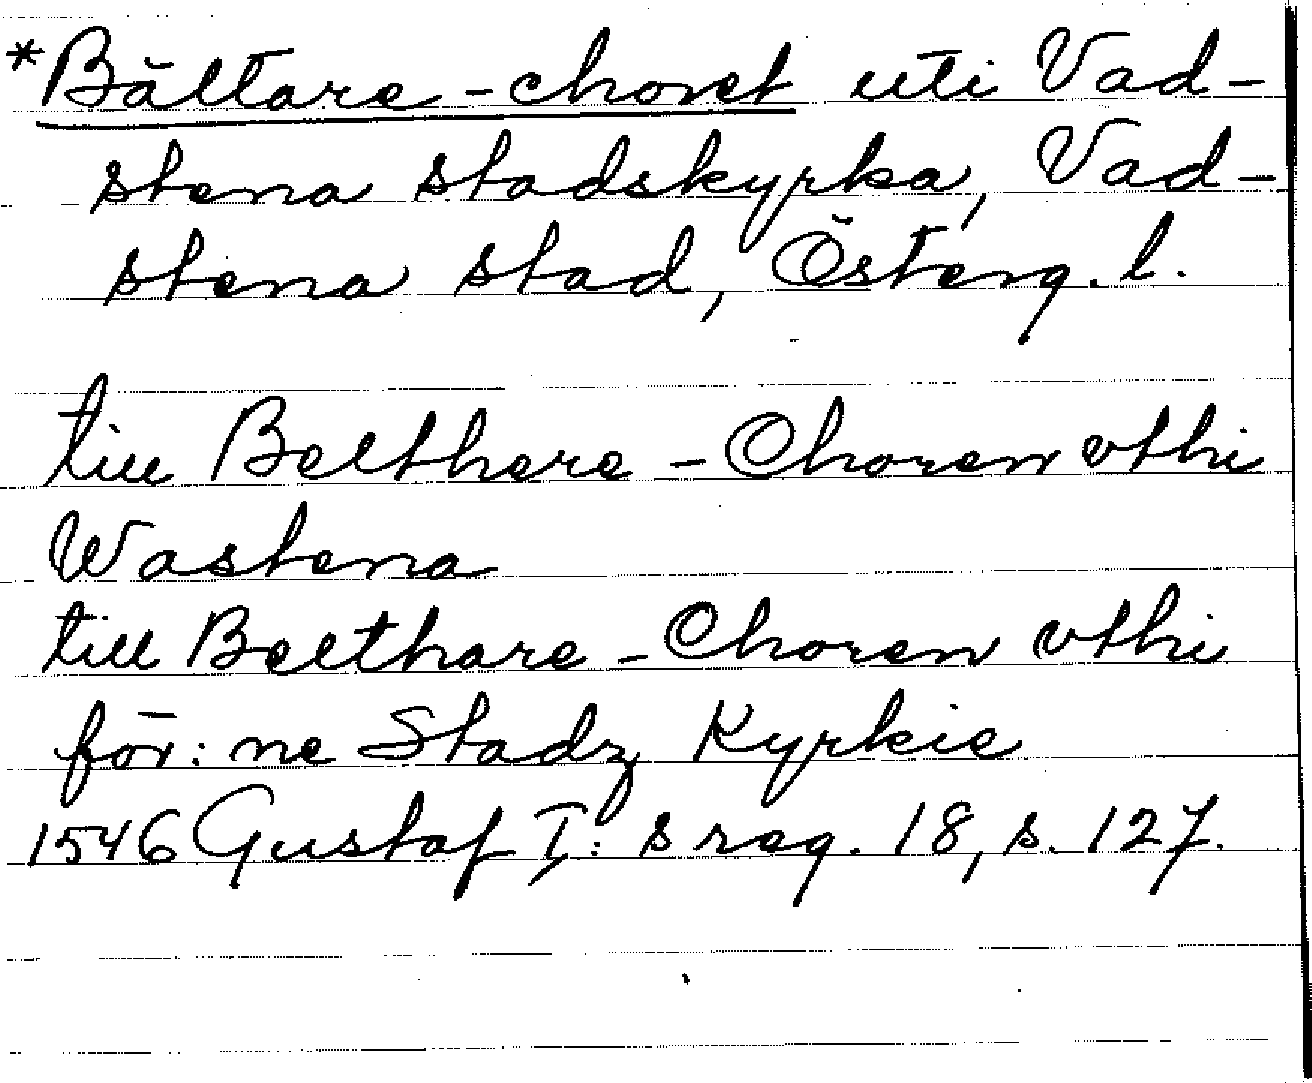 *Bältare-choret uti Vad-
stena stadskyrka, Vad-
stena stad, Österg. l.
till Belthere-Choren vthi
Wastena
till Beelthare-Choren vthi
för:ne Stadz Kyrkie
1546 Gustaf I:s reg. 18, s. 127.